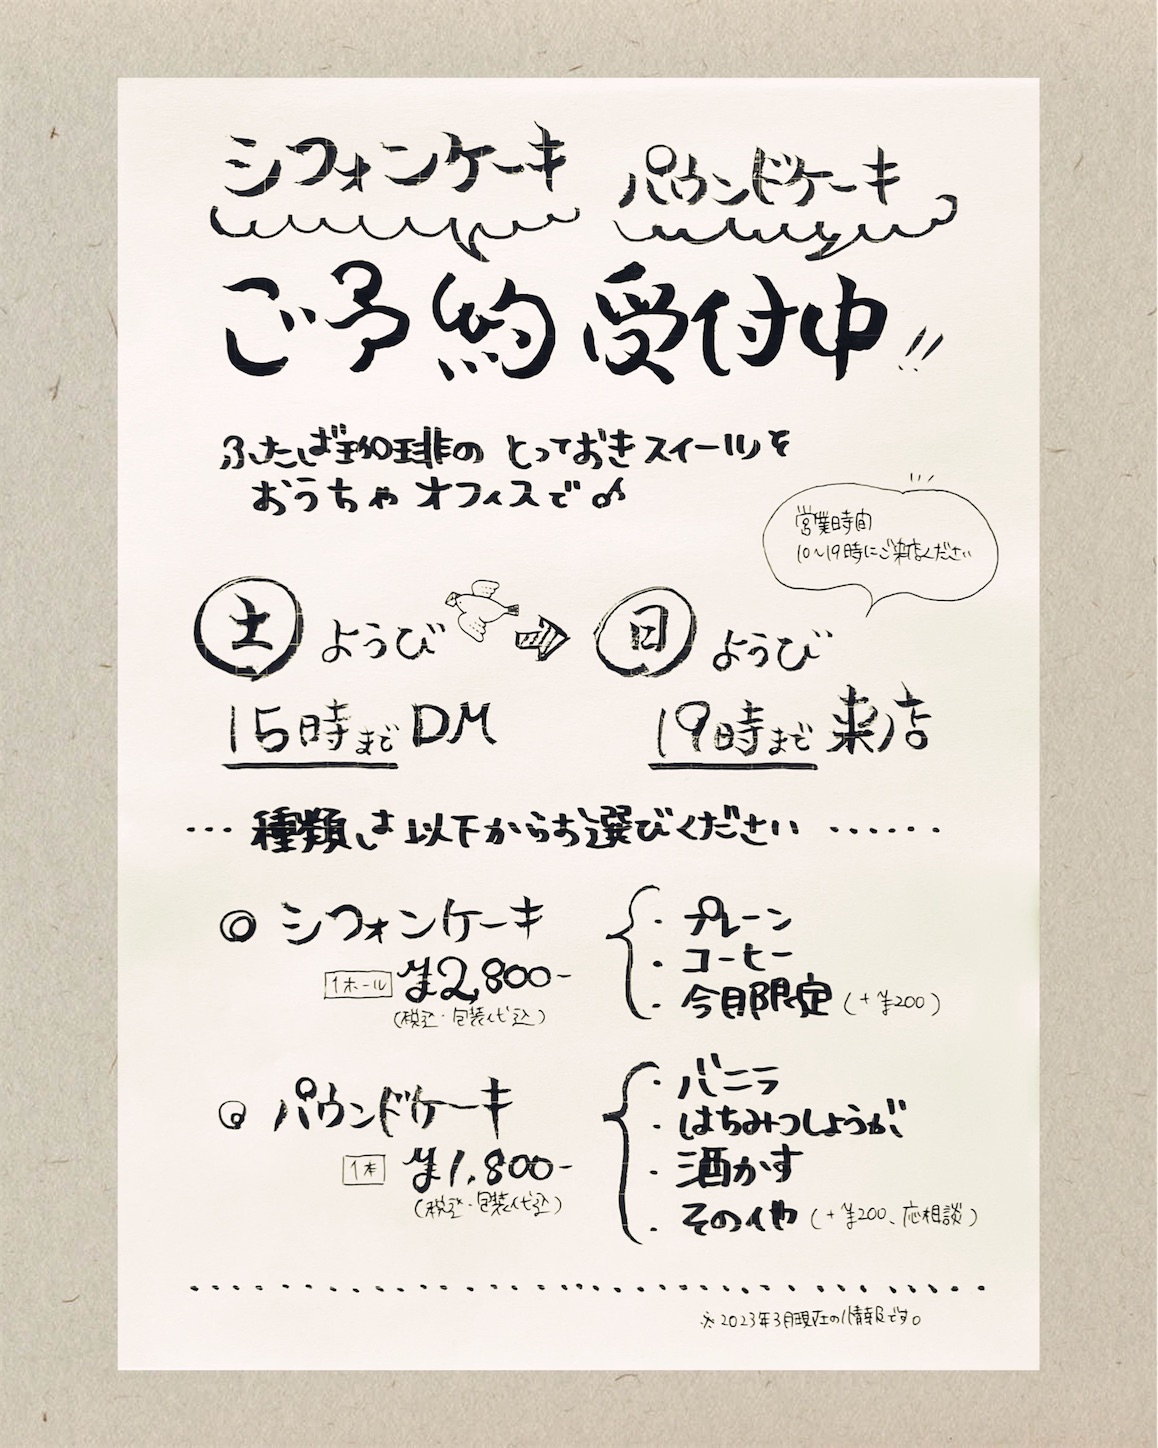 シフォンケーキ パウンドケーキ
ご予約受付中!!
ふたば珈琲の とっておきスイーツを
おうちや オフィスで♪
営業時間
10〜19時にご来店ください
土ようび ⇒ 日ようび
15時まで DM 19時まで 来店
… 種類は以下からお選びください ……
◎ シフォンケーキ
1ホール ¥2,800-
(税込・包装代込)
・プレーン
・コーヒー
・今月限定 (+¥200)
◎ パウンドケーキ
1本 ¥1,800-
(税込・包装代込)
・バニラ
・はちみつしょうが
・酒かす
・その他 (+¥200、応相談)
※2023年3月現在の情報です。